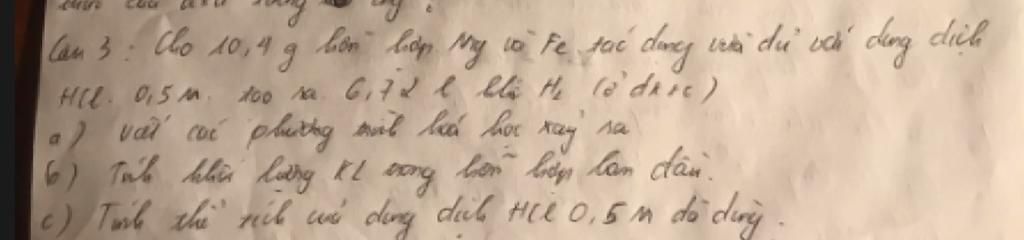 Câu 3: Cho 10,4 g hỗn hợp Mg và Fe tác dụng vừa đủ với dung dịch
HCl 0,5M. tạo ra 6,72 l khí H₂ (ở đktc)
a) viết các phương trình hoá học xảy ra
b) Tính khối lượng KL trong hỗn hợp ban đầu.
c) Tính thể tích của dung dịch HCl 0,5M đã dùng.